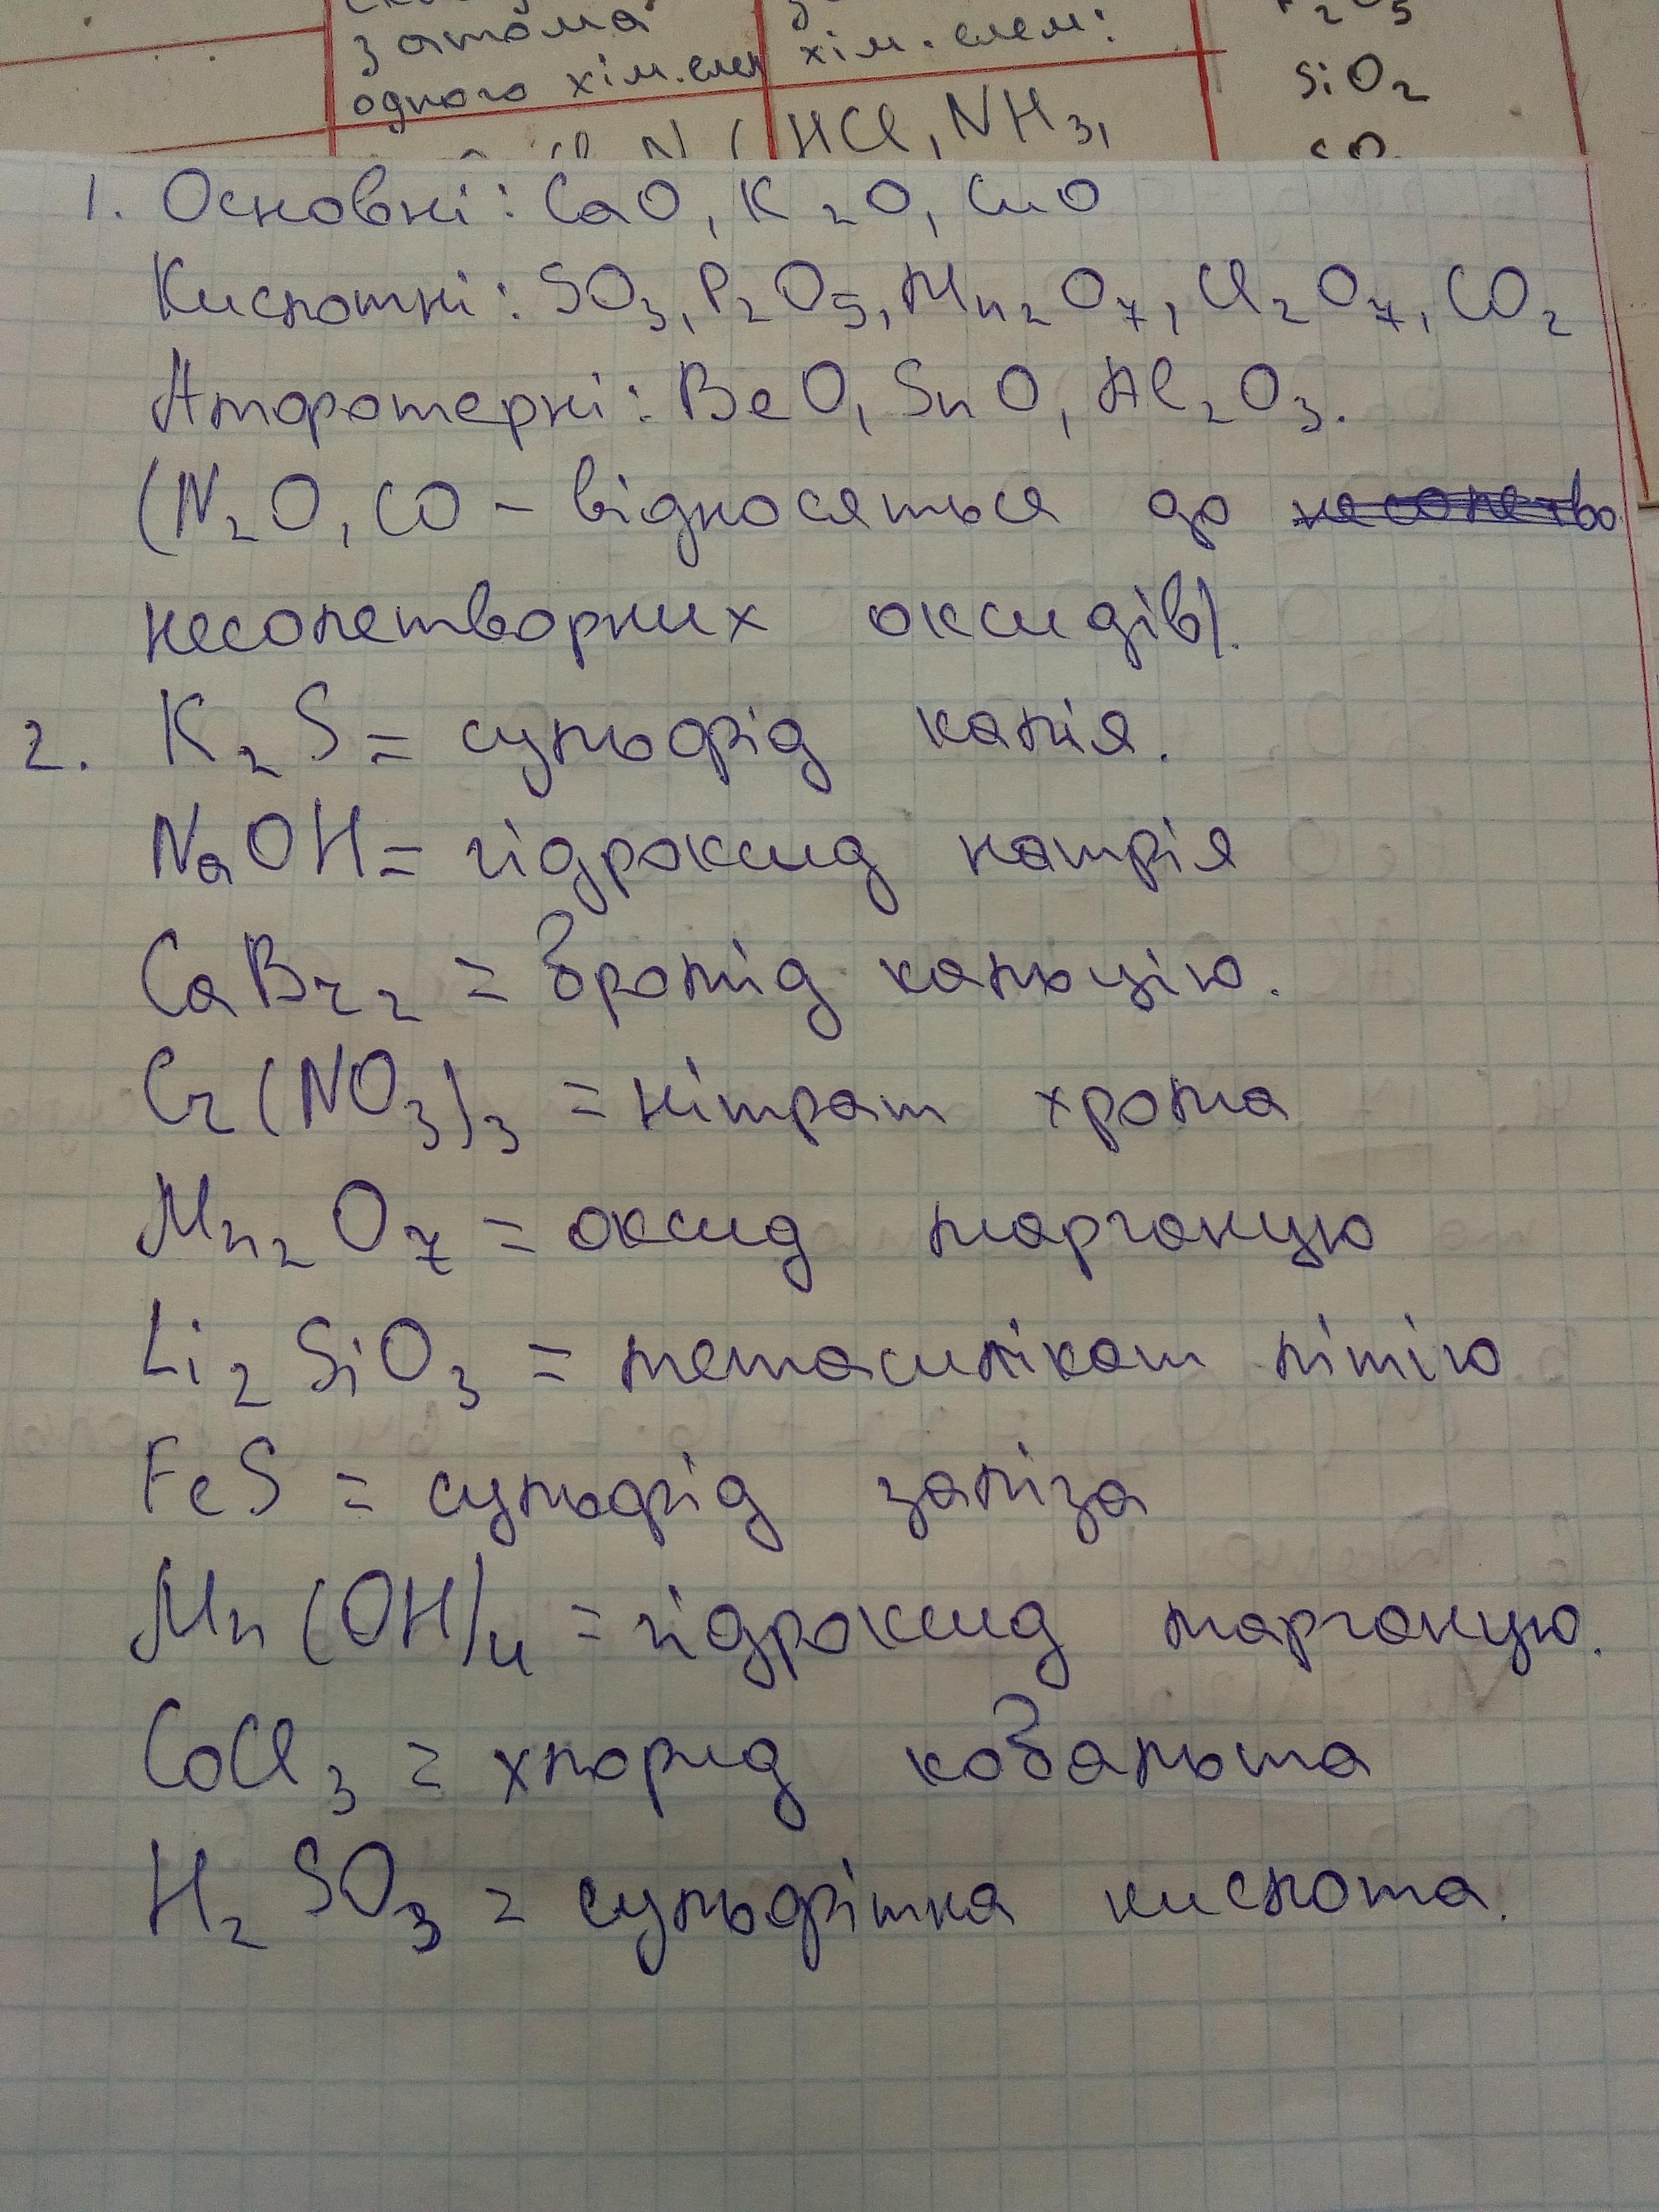 з атома
хім. елем:
одного хім. елем
SiO2
HCl, NH3,
1. Основні: CaO, K2O, CuO
Кислотні: SO3, P2O5, Mn2O7, Cl2O7, CO2
Амфотерні: BeO, SnO, Al2O3.
(N2O, CO - відносяться до несолетво
несолетворних оксидів).
2. K2S = сульфід калія.
NaOH = гідроксид натрія
CaBr2 = бромід кальцію.
Cr(NO3)3 = нітрат хрома
Mn2O7 = оксид марганцю
Li2SiO3 = метасилікат літію
FeS = сульфід заліза
Mn(OH)4 = гідроксид марганцю.
CoCl3 = хлорид кобальта
H2SO3 = сульфітна кислота.